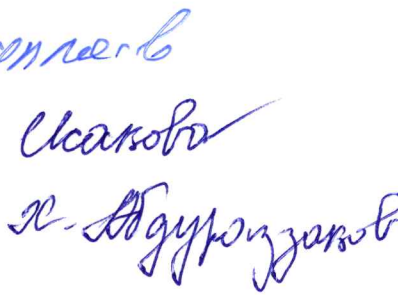 Исакова
Ж. Абдураззаков